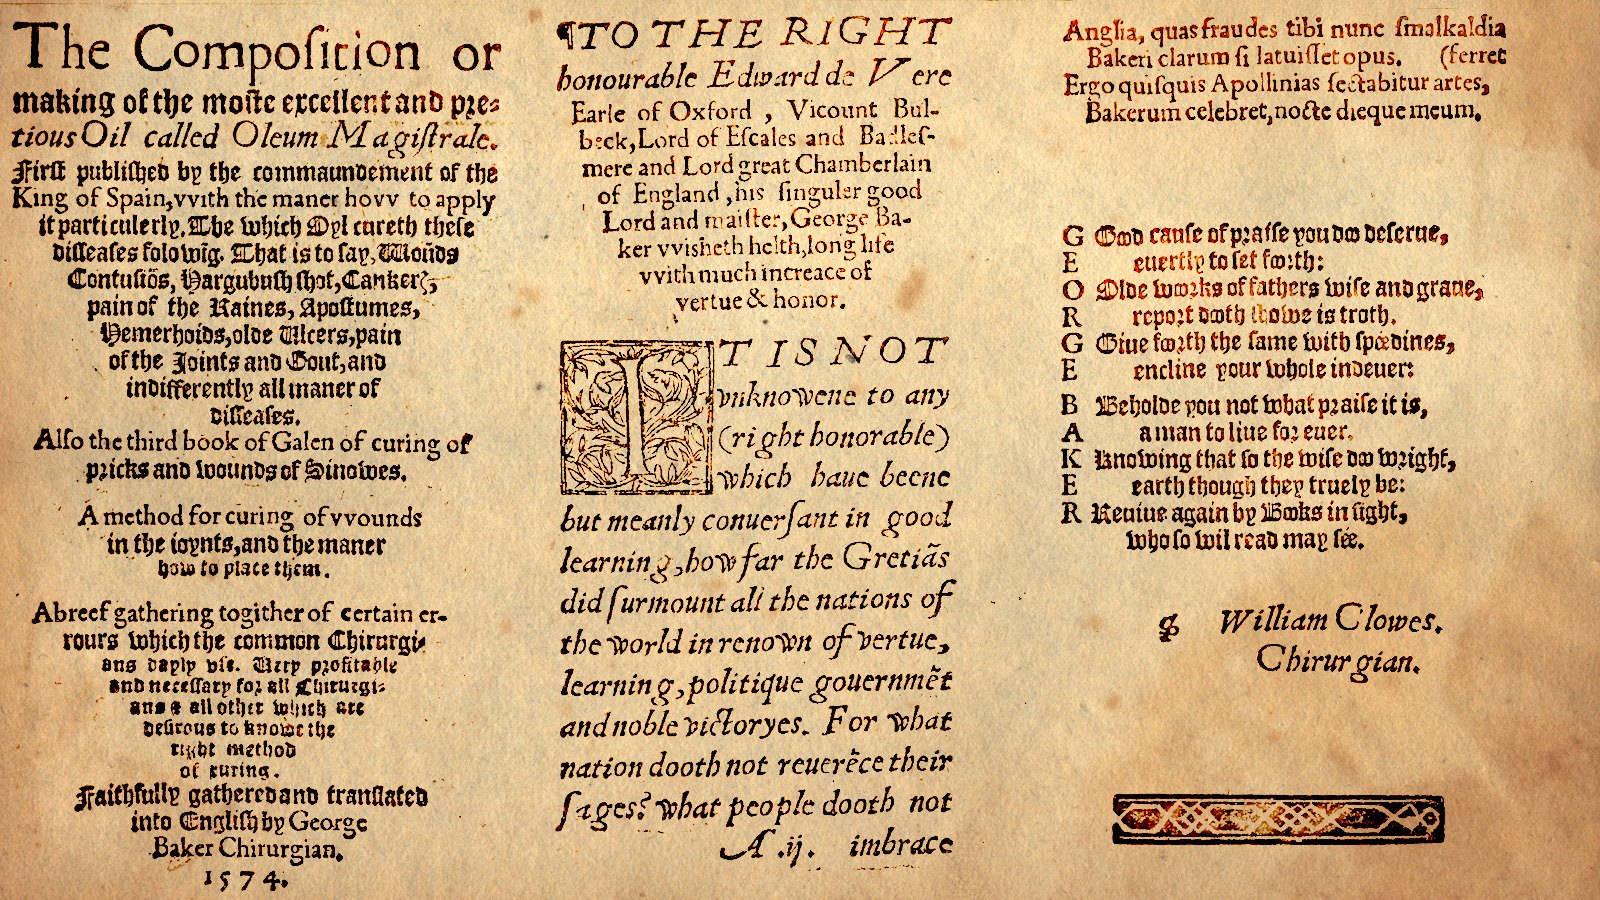 The Compoſition or
making of the moſte excellent and pre-
tious Oil called Oleum Magiſtrale.
Firſt publiſhed by the commaundement of the
King of Spain, vvith the maner hovv to apply
it particularly. The which Oyl cureth theſe
diſſeaſes folowīg. That is to ſay, Woūds
Contuſiōs, Hargubuſh ſhot, Cankers,
pain of the Raines, Apoſtumes,
Hemerhoids, olde Ulcers, pain
of the Joints and Gout, and
indifferently all maner of
diſſeaſes.
Alſo the third book of Galen of curing of
pricks and wounds of Sinowes.
A method for curing of vvounds
in the ioynts, and the maner
how to place them.
A breef gathering togither of certain er-
rours which the common Chirurgi-
ans dayly vſe. Very profitable
and neceſſary for all Chirurgi-
ans & all other which are
deſirous to knowe the
right method
of curing.
Faithfully gathered and tranſlated
into Engliſh by George
Baker Chirurgian.
1574.
¶TO THE RIGHT
honourable Edward de Vere
Earle of Oxford, Vicount Bul-
beck, Lord of Eſcales and Badleſ-
mere and Lord great Chamberlain
of England, his ſinguler good
Lord and maiſter, George Ba-
ker vviſheth helth, long life
vvith much increace of
vertue & honor.
IT IS NOT
vnknowene to any
(right honorable)
which haue beene
but meanly conuerſant in good
learning, how far the Gretiãs
did ſurmount all the nations of
the world in renown of vertue,
learning, politique gouernmẽt
and noble victoryes. For what
nation dooth not reuerẽce their
ſages? what people dooth not
A.ij. imbrace
Anglia, quas fraudes tibi nunc ſmalkaldia
Bakeri clarum ſi latuiſſet opus. (ferret
Ergo quiſquis Apollinias ſectabitur artes,
Bakerum celebret, nocte dieque meum.
G Good cauſe of praiſe you doo deſerue,
E euertly to ſet foorth:
O Olde woorks of fathers wiſe and graue,
R report dooth ſhowe is troth.
G Giue foorth the ſame with ſpœdines,
E encline your whole indeuer:
B Beholde you not what praiſe it is,
A a man to liue for euer.
K Knowing that ſo the wiſe doo wright,
E earth though they truely be:
R Reuiue again by Books in ſight,
who ſo wil read may ſée.
William Clowes.
Chirurgian.